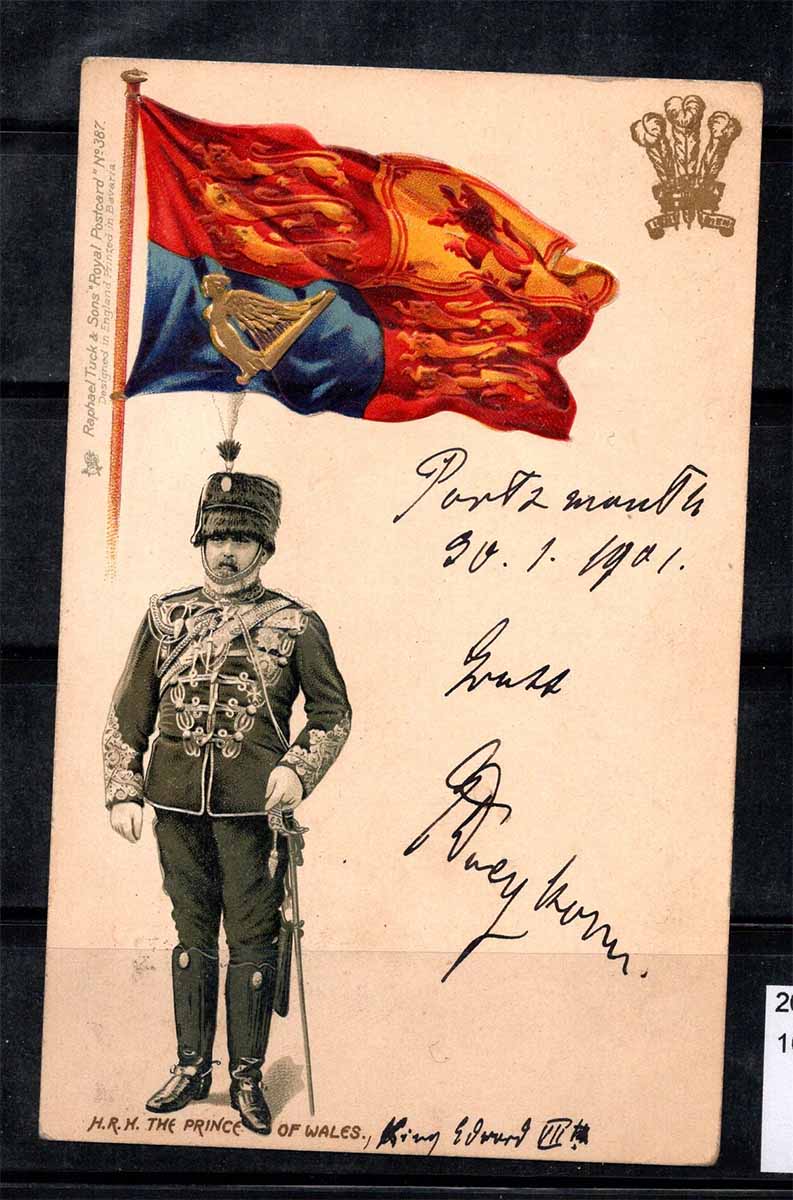 Raphael Tuck & Sons "Royal Postcard" No 387.
Designed in England Printed in Bavaria
Portsmouth
30. 1. 1901.
Gruss
H.R.H. THE PRINCE OF WALES., King Edward VII th